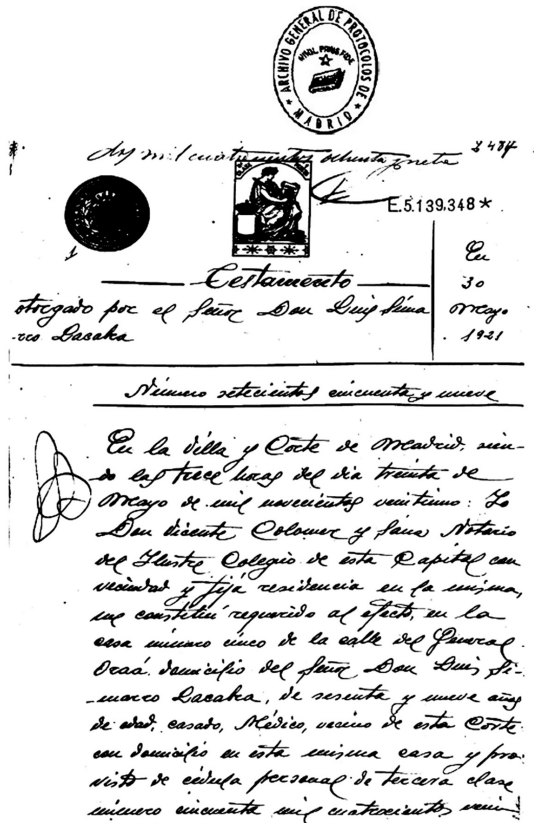 ARCHIVO GENERAL DE PROTOCOLOS DE MADRID
NIHIL PRIUS FIDE
dos mil cuatrocientos ochenta y siete 2487
E.5.139,348*
1
Testamento
otorgado por el Señor Don Luis Sima
rro Lacabra
En
30
Mayo
1921
Número setecientos cincuenta y nueve
En la Villa y Corte de Madrid, sien-
do las trece horas del dia treinta de
Mayo de mil novecientos veintiuno: Yo
Don Vicente Colomer y Sanz Notario
del Ilustre Colegio de esta Capital con
vecindad y fija residencia en la misma,
me constituí requerido al efecto, en la
casa número cinco de la calle del General
Oraá, domicilio del Señor Don Luis Si-
-marro Lacabra, de sesenta y nueve años
de edad, casado, Médico, vecino de esta Corte
con domicilio en esta misma casa y pro-
visto de cédula personal de tercera clase
número cincuenta mil cuatrocientos vein